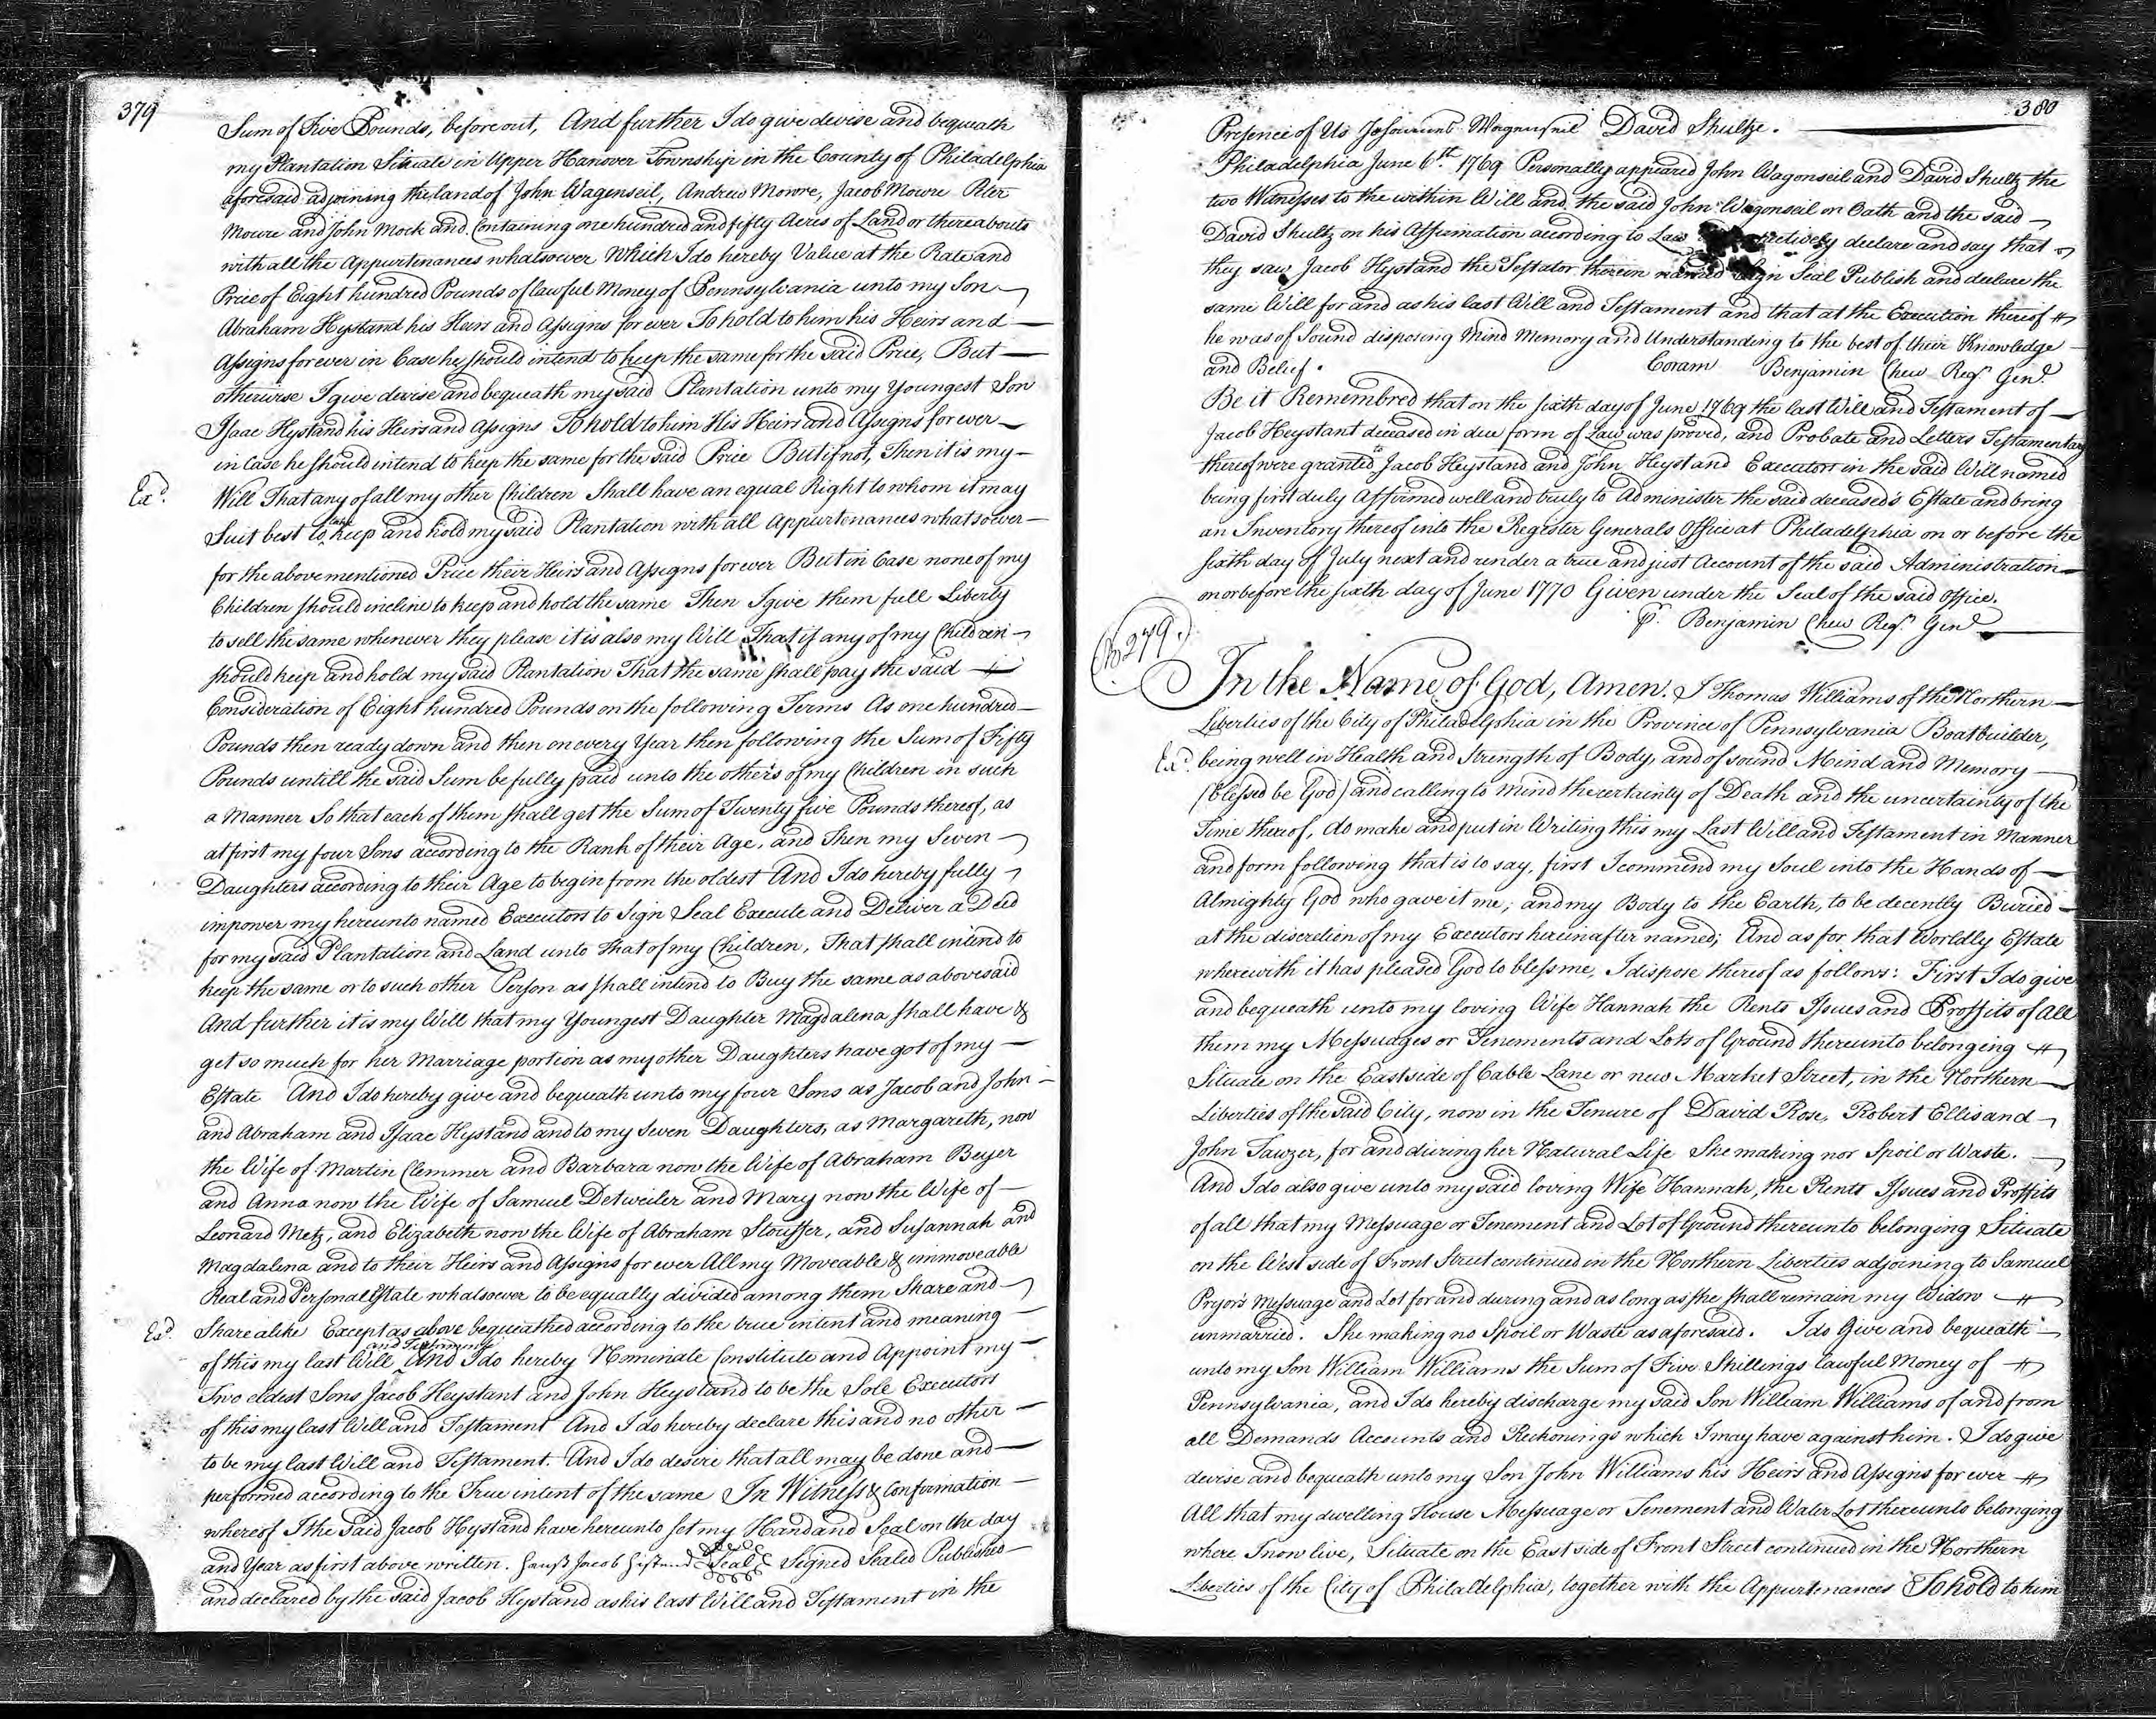 379
Sum of Five Pounds, before out, And further I do give devise and bequeath
my Plantation Situate in Upper Hanover Township in the County of Philadelphia
aforesaid adjoining the land of John Wagenseil, Andrew Mowre, Jacob Mowre Peter
Mowre and John Mock and Containing one hundred and fifty Acres of Land or thereabouts
with all the Appurtenances whatsoever Which I do hereby Value at the Rate and
Price of Eight hundred Pounds of lawful Money of Pennsylvania unto my Son
Abraham Hystand his Heirs and Assigns for ever To hold to him his Heirs and
Assigns for ever in Case he should intend to keep the same for the said Price, But
otherwise I give devise and bequeath my said Plantation unto my Youngest Son
Isaac Hystand his Heirs and Assigns To hold to him His Heirs and Assigns for ever
in Case he should intend to keep the same for the said Price But if not, Then it is my
Exd. Will That any of all my other Children Shall have an equal Right to whom it may
Suit best to take keep and hold my said Plantation with all Appurtenances whatsoever
for the abovementioned Price their Heirs and Assigns forever But in Case none of my
Children should incline to keep and hold the same Then I give them full Liberty
to sell the same whenever they please it is also my Will That if any of my Children
should keep and hold my said Plantation That the same shall pay the said
Consideration of Eight hundred Pounds on the following Terms As one hundred
Pounds then ready down and then on every Year then following the Sum of Fifty
Pounds untill the said Sum be fully paid unto the others of my Children in such
a Manner So that each of them shall get the Sum of Twenty five Pounds thereof, as
at first my four Sons according to the Rank of their Age, and Then my Seven
Daughters according to their Age to begin from the oldest And I do hereby fully
impower my hereunto named Executors to Sign Seal Execute and Deliver a Deed
for my said Plantation and Land unto that of my Children, That shall intend to
keep the same or to such other Person as shall intend to Buy the same as abovesaid
And further it is my Will that my Youngest Daughter Magdalena shall have &
get so much for her Marriage portion as my other Daughters have got of my
Estate And I do hereby give and bequeath unto my four Sons as Jacob and John
and Abraham and Isaac Hystand and to my Seven Daughters, as Margareth, now
the Wife of Martin Clemmer and Barbara now the Wife of Abraham Beyer
and Anna now the Wife of Samuel Detweiler and Mary now the Wife of
Leonard Metz, and Elizabeth now the Wife of Abraham Stouffer, and Susannah and
Magdalena and to their Heirs and Assigns for ever All my Moveable & immoveable
Real and Personal Estate whatsoever to be equally divided among them Share and
Exd. Share alike Except as above bequeathed according to the true intent and meaning
of this my last Will and Testament And I do hereby Nominate Constitute and Appoint my
Two eldest Sons Jacob Heystant and John Heystand to be the Sole Executors
of this my last Will and Testament And I do hereby declare this and no other
to be my last Will and Testament. And I do desire that all may be done and
performed according to the True intent of the same In Witness & Confirmation
whereof I the said Jacob Hystand have hereunto set my Hand and Seal on the day
and Year as first above written. Jacob Seal Signed Sealed Published
and declared by the said Jacob Hystand as his last Will and Testament in the
380
Presence of Us David Shultze.
Philadelphia June 6th. 1769 Personally appeared John Wagonseil and David Shultz the
two Witnesses to the within Will and the said John Wagonseil on Oath and the said
David Shultz on his Affirmation according to Law declare and say that
they saw Jacob Hystand the Testator therein named Sign Seal Publish and declare the
same Will for and as his last Will and Testament and that at the Execution thereof
he was of Sound disposing Mind Memory and Understanding to the best of their Knowledge
and Belief. Coram Benjamin Chew Regr. Genl.
Be it Remembred that on the sixth day of June 1769 the last Will and Testament of
Jacob Heystant deceased in due form of Law was proved, and Probate and Letters Testamentary
thereof were granted to Jacob Heystand and John Heystand Executors in the said Will named
being first duly Affirmed well and truly to Administer the said deceased's Estate and bring
an Inventory thereof into the Register Generals Office at Philadelphia on or before the
sixth day of July next and render a true and just Account of the said Administration
on or before the sixth day of June 1770 Given under the Seal of the said Office.
Pr. Benjamin Chew Regr. Genl.
No. 279.
In the Name of God, Amen. I Thomas Williams of the Northern
Liberties of the City of Philadelphia in the Province of Pennsylvania Boatbuilder,
Exd. being well in Health and Strength of Body, and of sound Mind and Memory
(blessed be God) and calling to mind the certainty of Death and the uncertainty of the
Time thereof, do make and put in Writing this my Last Will and Testament in Manner
and form following that is to say, first I commend my Soul into the Hands of
Almighty God who gave it me, and my Body to the Earth, to be decently Buried
at the discretion of my Executors herein after named; And as for that Worldly Estate
wherewith it has pleased God to bless me, I dispose thereof as follows: First I do give
and bequeath unto my loving Wife Hannah the Rents Issues and Proffits of All
them my Messuages or Tenements and Lots of Ground thereunto belonging
Situate on the East side of Cable Lane or new Market Street, in the Northern
Liberties of the said City, now in the Tenure of David Rose, Robert Ellis and
John Tawzer, for and during her Natural Life She making nor Spoil or Waste.
And I do also give unto my said loving Wife Hannah, the Rents Issues and Proffits
of all that my Messuage or Tenement and Lot of Ground thereunto belonging Situate
on the West side of Front Street continued in the Northern Liberties adjoining to Samuel
Pryor's Messuage and Lot for and during and as long as she shall remain my Widow
unmarried. She making no Spoil or Waste as aforesaid. I do Give and bequeath
unto my Son William Williams the Sum of Five Shillings lawful Money of
Pennsylvania, and I do hereby discharge my said Son William Williams of and from
all Demands Accounts and Reckonings which I may have against him. I do give
devise and bequeath unto my Son John Williams his Heirs and Assigns for ever
All that my dwelling House Messuage or Tenement and Water Lot thereunto belonging
where I now live, Situate on the East side of Front Street continued in the Northern
Liberties of the City of Philadelphia, together with the Appurtenances To hold to him